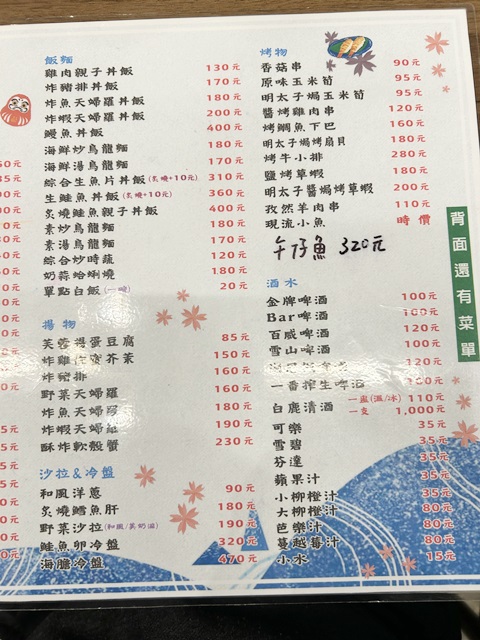 飯麵
雞肉親子丼飯 130元
炸豬排丼飯 170元
炸魚天婦羅丼飯 180元
炸蝦天婦羅丼飯 200元
鰻魚丼飯 400元
海鮮炒烏龍麵 180元
海鮮湯烏龍麵 170元
綜合生魚片丼飯(炙燒+10元) 310元
生鮭魚丼飯(炙燒+10元) 360元
炙燒鮭魚親子丼飯 400元
素炒烏龍麵 180元
素湯烏龍麵 170元
綜合炒時蔬 120元
奶蒜蛤蜊燒 180元
單點白飯 20元
揚物
芙蓉揚蛋豆腐 85元
炸雞 芥茉 150元
炸豬排 160元
野菜天婦羅 160元
炸魚天婦羅 180元
炸蝦天婦羅 190元
酥炸軟殼蟹 230元
沙拉&冷盤
和風洋蔥 90元
炙燒鱈魚肝 180元
野菜沙拉(和風/美奶滋) 190元
鮭魚卵冷盤 320元
海膽冷盤 470元
烤物
香菇串 90元
原味玉米筍 95元
明太子焗玉米筍 95元
醬烤雞肉串 120元
烤鯛魚下巴 160元
明太子焗烤扇貝 180元
烤牛小排 280元
鹽烤草蝦 180元
明太子醬焗烤草蝦 200元
孜然羊肉串 110元
現流小魚 時價
午仔魚 320元
酒水
金牌啤酒 100元
Bar啤酒 100元
百威啤酒 120元
雪山啤酒 100元
120元
一番搾生啤酒
白鹿清酒 一壺(溫/冰) 110元
一支 1,000元
可樂 35元
雪碧 35元
芬達 35元
蘋果汁 35元
小柳橙汁 35元
大柳橙汁 80元
芭樂汁 80元
蔓越莓汁 80元
小水 15元
背面還有菜單